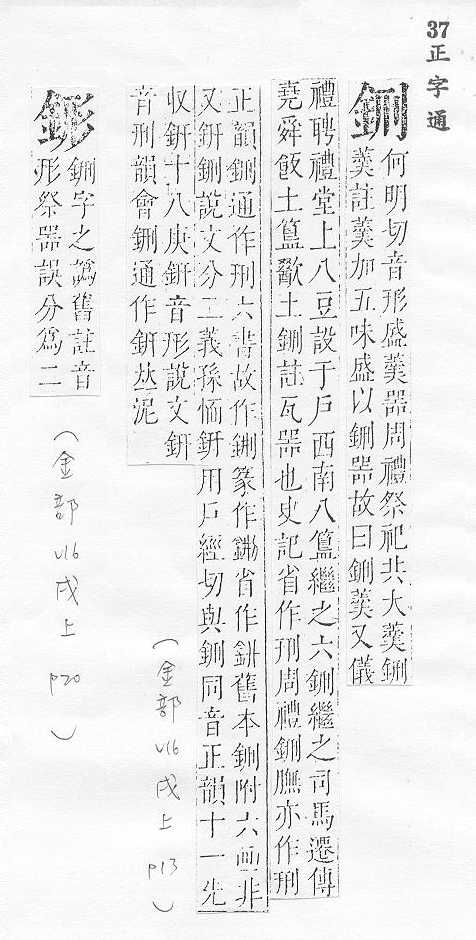 37正字通
鉶
何明切音形盛羹器周禮祭祀共大羹鉶
羹註羹加五味盛以鉶器故曰鉶羹又儀
禮聘禮堂上八豆設于戶西南八簋繼之六鉶繼之司馬遷傳
堯舜飯土簋歠土鉶註瓦器也史記省作刑周禮鉶膴亦作刑
正韻鉶通作刑六書故作鉶篆作省作鈃舊本鉶附六画非
又鈃鉶說文分二義孫愐鈃用戶經切與鉶同音正韻十一先
收鈃十八庚鈃音形說文鈃
音刑韻會鉶通作鈃𠀤泥
(金部 v16 戌上 p13)
鉶字之譌舊註音
形祭器誤分爲二
(金部 v16 戌上 p20)